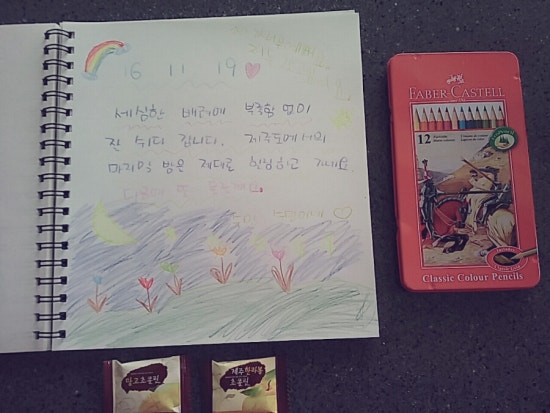 16 11 19
세심한 배려에 부족함 없이
잘 쉬다 갑니다. 제주도에서의
마지막 밤을 제대로 힐링하고 가네요.
다음에 또
FABER-CASTELL
12
Classic Colour Pencils
망고초콜릿
제주한라봉
초콜릿